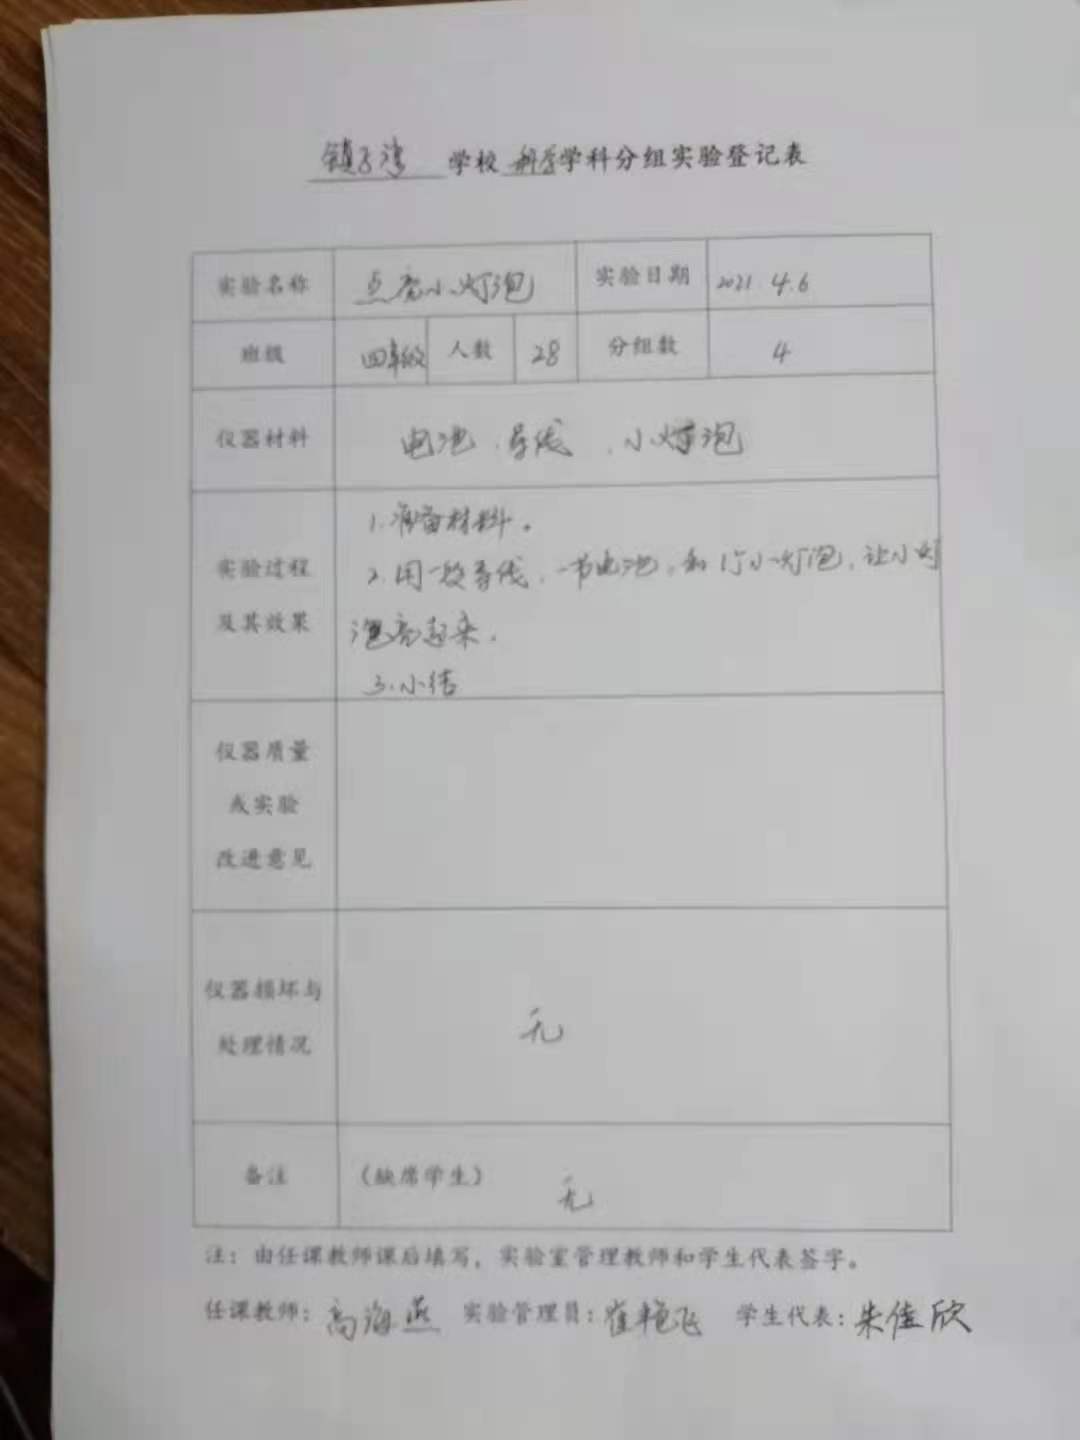 镇子湾 学校 科学 学科分组实验登记表
实验名称 点亮小灯泡 实验日期 2021.4.6
班级 四年级 人数 28 分组数 4
仪器材料 电池、导线、小灯泡
实验过程
及其效果
1.准备材料。
2.用一段导线、一节电池、和1个小灯泡,让小灯
泡亮起来.
3.小结
仪器质量
或实验
改进意见
仪器损坏与
处理情况
无
备注 (缺席学生) 无
注:由任课教师课后填写,实验室管理教师和学生代表签字。
任课教师:高海燕 实验管理员:崔艳飞 学生代表:朱佳欣